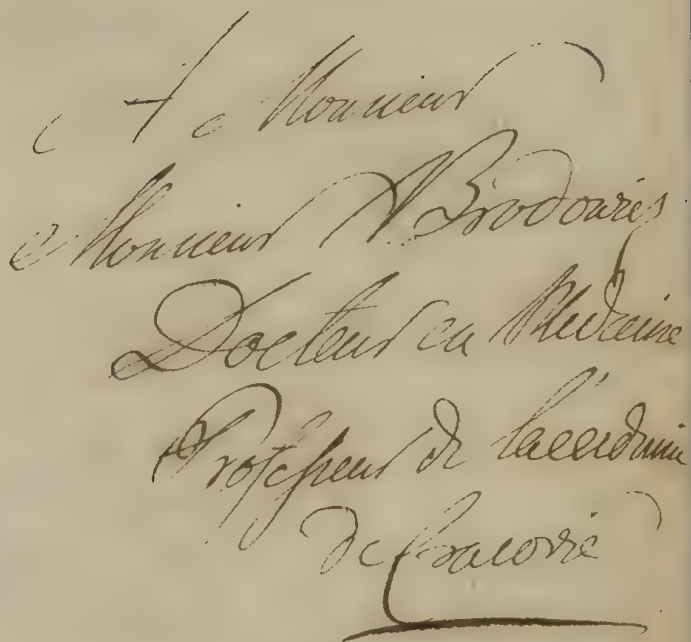 A Monsieur
Monsieur A Brodowicz
Docteur en Medecine
Professeur de l'academie
de Cracovie